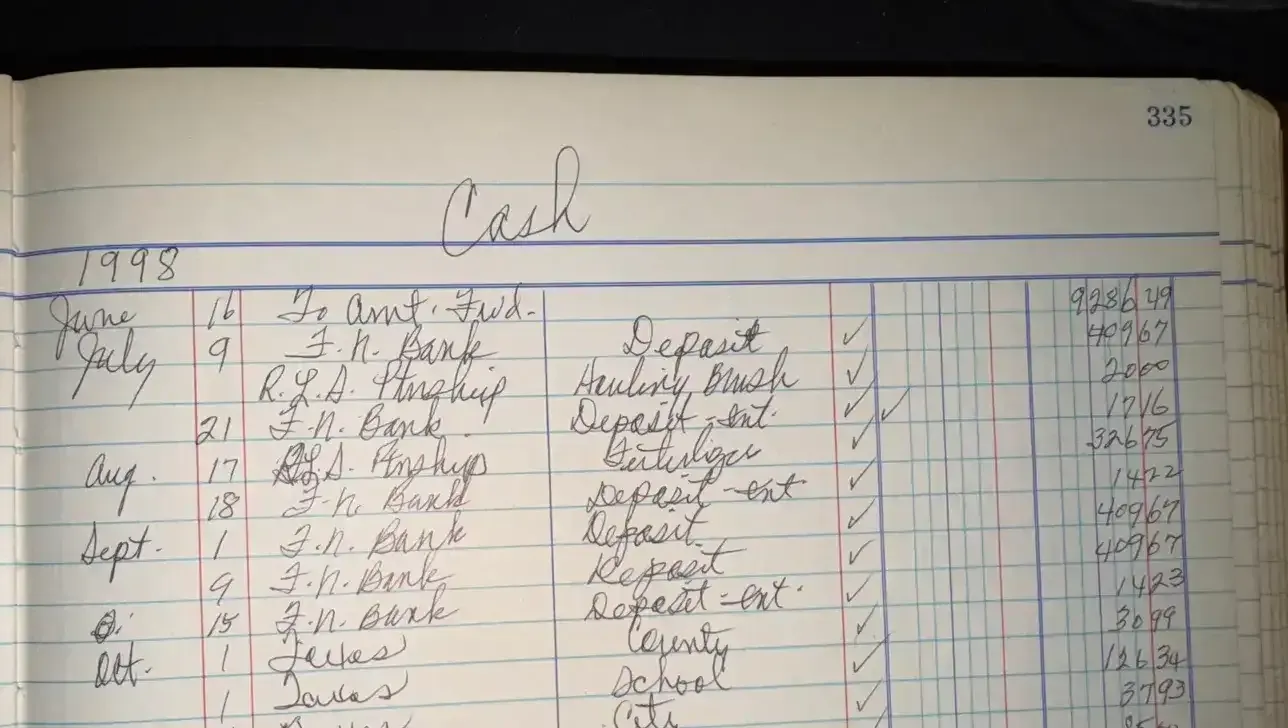 335
Cash
1998
June 16 To Amt. Fwd. 9286 49
July 9 F.N. Bank Deposit ✓ 409 67
R.L.S. Ptnship Hauling Brush ✓ 20 00
21 F.N. Bank Deposit - Int. ✓ ✓ 17 16
Aug. 17 R.L.S. Ptnship Fertilizer ✓ 326 75
18 F.N. Bank Deposit - Int. ✓ 14 22
Sept. 1 F.N. Bank Deposit ✓ 409 67
9 F.N. Bank Deposit ✓ 409 67
15 F.N. Bank Deposit - Int. ✓ 14 23
Oct. 1 Taxes County ✓ 30 99
1 Taxes School ✓ 126 34
City ✓ 37 93